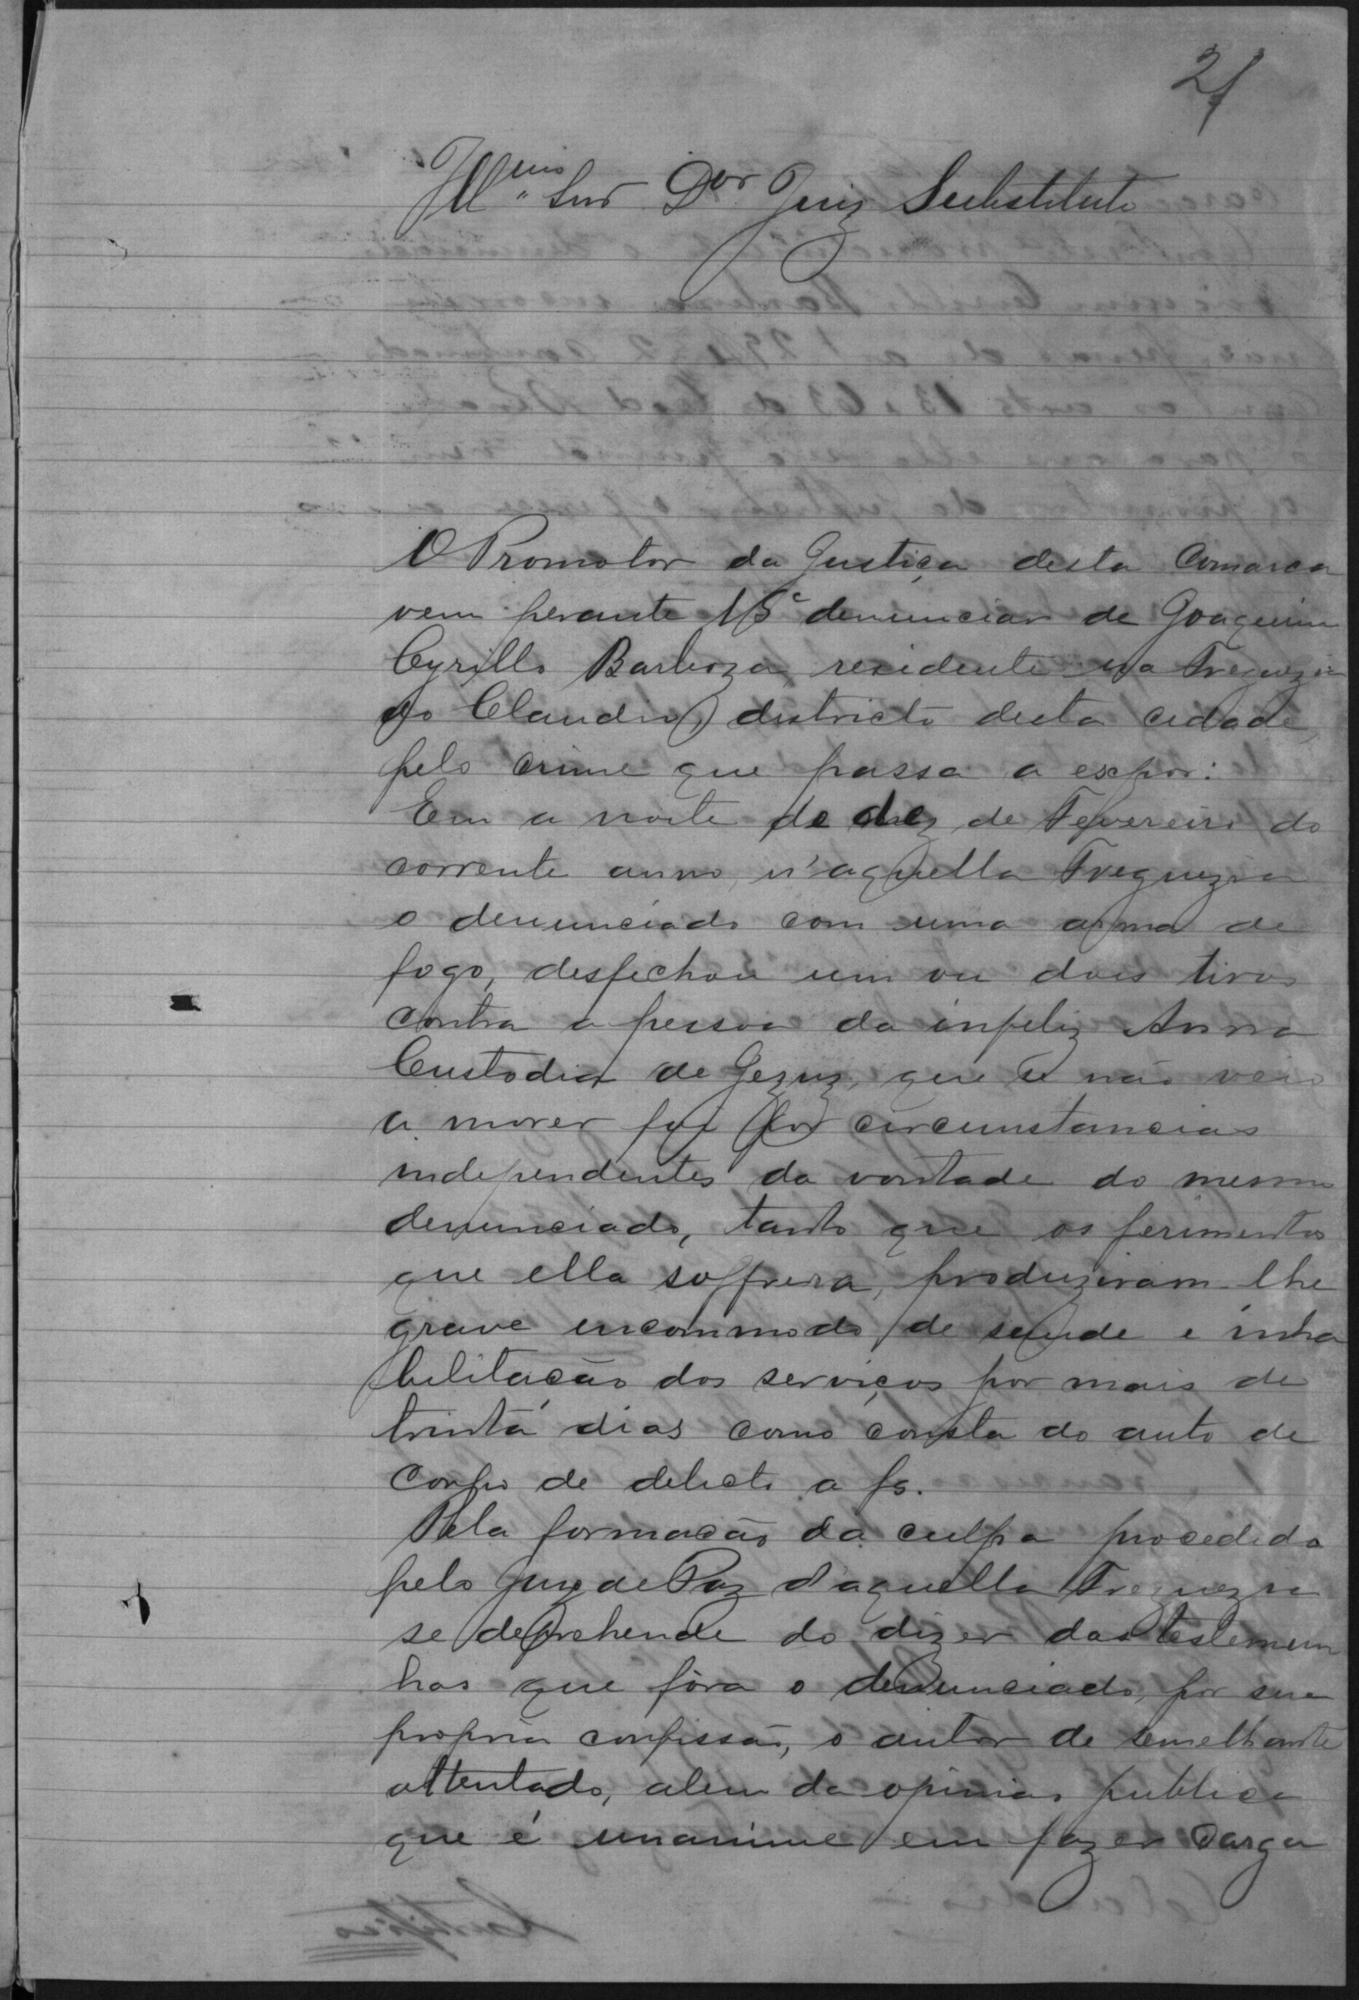 2
Ill.mo Snr Dor Juiz Substituto
O Promotor da Justiça desta Comarca
vem perante VSª denunciar de Joaquim
Cyrillo Barboza, residente na Freguezia
do Claudio, districto desta cidade,
pelo crime que passa a expor:
Em a noite de dez de Fevereiro do
corrente anno, n'aquella Freguezia
o denunciado com uma arma de
fogo, desfechou um ou dois tiros
contra a pessoa da infeliz Anna
Custodia de Jezuz, que se não veio
a morrer foi por circumstancias
independentes da vontade do mesmo
denunciado, tanto que os ferimentos
que ella soffrera, produziram-lhe
grave incommodo de saude e inha
bilitacão dos serviços por mais de
trinta dias como consta do auto de
corpo de delicto a fs.
Pela formacão da culpa procedida
pelo Juiz de Paz d'aquella Freguezia
se deprehende do dizer das testemun
has que fôra o denunciado, por sua
propria confissão, o autor de semelhante
attentado, alem da opinião publica
que é unanime em fazer carga